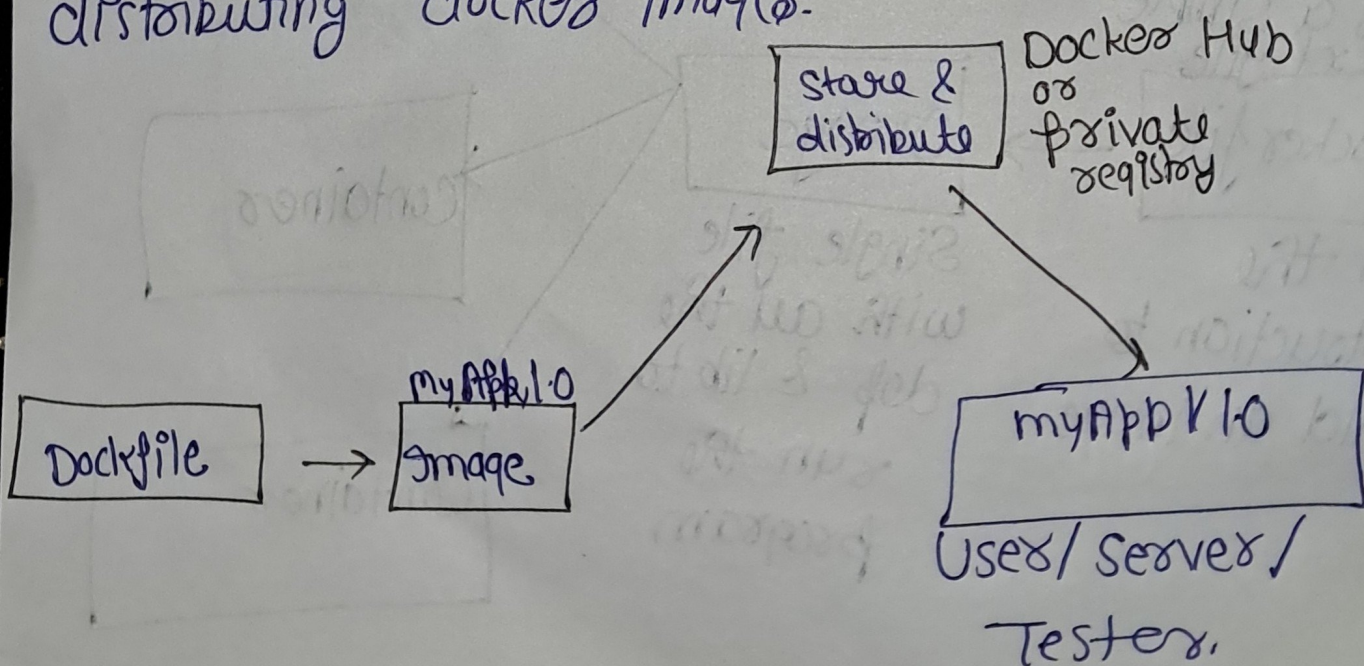 distributing docker images.
Store &
distribute
Docker Hub
or
private
registry
myApp 1.0
Dockfile
Image
myApp V 1.0
User/ Server/
Tester.